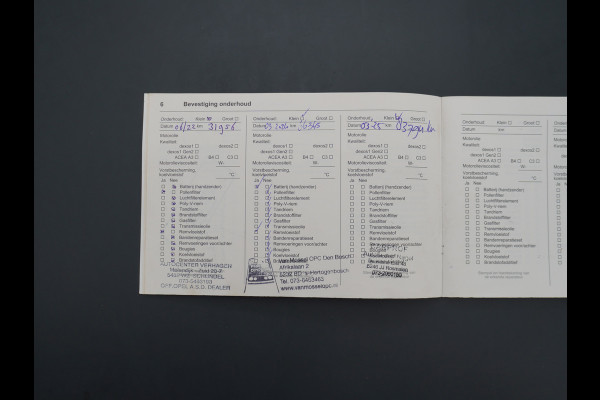 6 Bevestiging onderhoud
Onderhoud: Klein Groot
Datum 01/22 km 31956
Motorolie
Kwaliteit:
dexos1 dexos2
dexos1 Gen2
ACEA A3 B4 C3
Motorolieviscositeit W-
Vorstbescherming,
koelvloeistof °C
Ja Nee
Batterij (handzender)
Pollenfilter
Luchtfilterelement
Poly-V-riem
Tandriem
Brandstoffilter
Gasfilter
Transmissieolie
Remvloeistof
Bandenreparatieset
Remvoeringen voor/achter
Bougies
Koelvloeistof
Brandstofadditief
AUTOCENTER VERHASCH
073-5498109
OPEL A.S.D. DEALER
Onderhoud: Klein Groot
Datum km
Motorolie
Kwaliteit:
dexos1 dexos2
dexos1 Gen2
ACEA A3 B4 C3
Motorolieviscositeit W-
Vorstbescherming,
koelvloeistof °C
Ja Nee
Batterij (handzender)
Pollenfilter
Luchtfilterelement
Poly-V-riem
Tandriem
Brandstoffilter
Gasfilter
Transmissieolie
Remvloeistof
Bandenreparatieset
Remvoeringen voor/achter
Bougies
Koelvloeistof
Van Mossel OPC Den Bosch
Afrikalaan 2
's-Hertogenbosch
www.vanmosselopc.nl
Onderhoud: Klein Groot
Datum 03-25 km
Motorolie
Kwaliteit:
dexos1 dexos2
dexos1 Gen2
ACEA A3 B4 C3
Motorolieviscositeit W-
Vorstbescherming,
koelvloeistof °C
Ja Nee
Batterij (handzender)
Pollenfilter
Luchtfilterelement
Poly-V-riem
Tandriem
Brandstoffilter
Gasfilter
Transmissieolie
Remvloeistof
Bandenreparatieset
Remvoeringen voor/achter
Bougies
Rosmalen
Onderhoud: Klein Groot
Datum km
Motorolie
Kwaliteit:
dexos1
dexos1 Gen2
ACEA A3 B4
Motorolieviscositeit
Vorstbescherming,
koelvloeistof
Ja Nee
Batterij (handzender)
Pollenfilter
Luchtfilterelement
Poly-V-riem
Tandriem
Brandstoffilter
Gasfilter
Transmissieolie
Remvloeistof
Bandenreparatieset
Remvoeringen voor/achter
Bougies
Koelvloeistof
Brandstofadditief